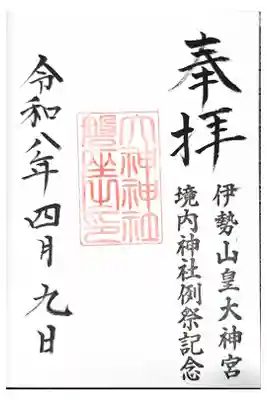 奉拝
伊勢山皇大神宮
境内神社例祭記念
令和八年四月九日